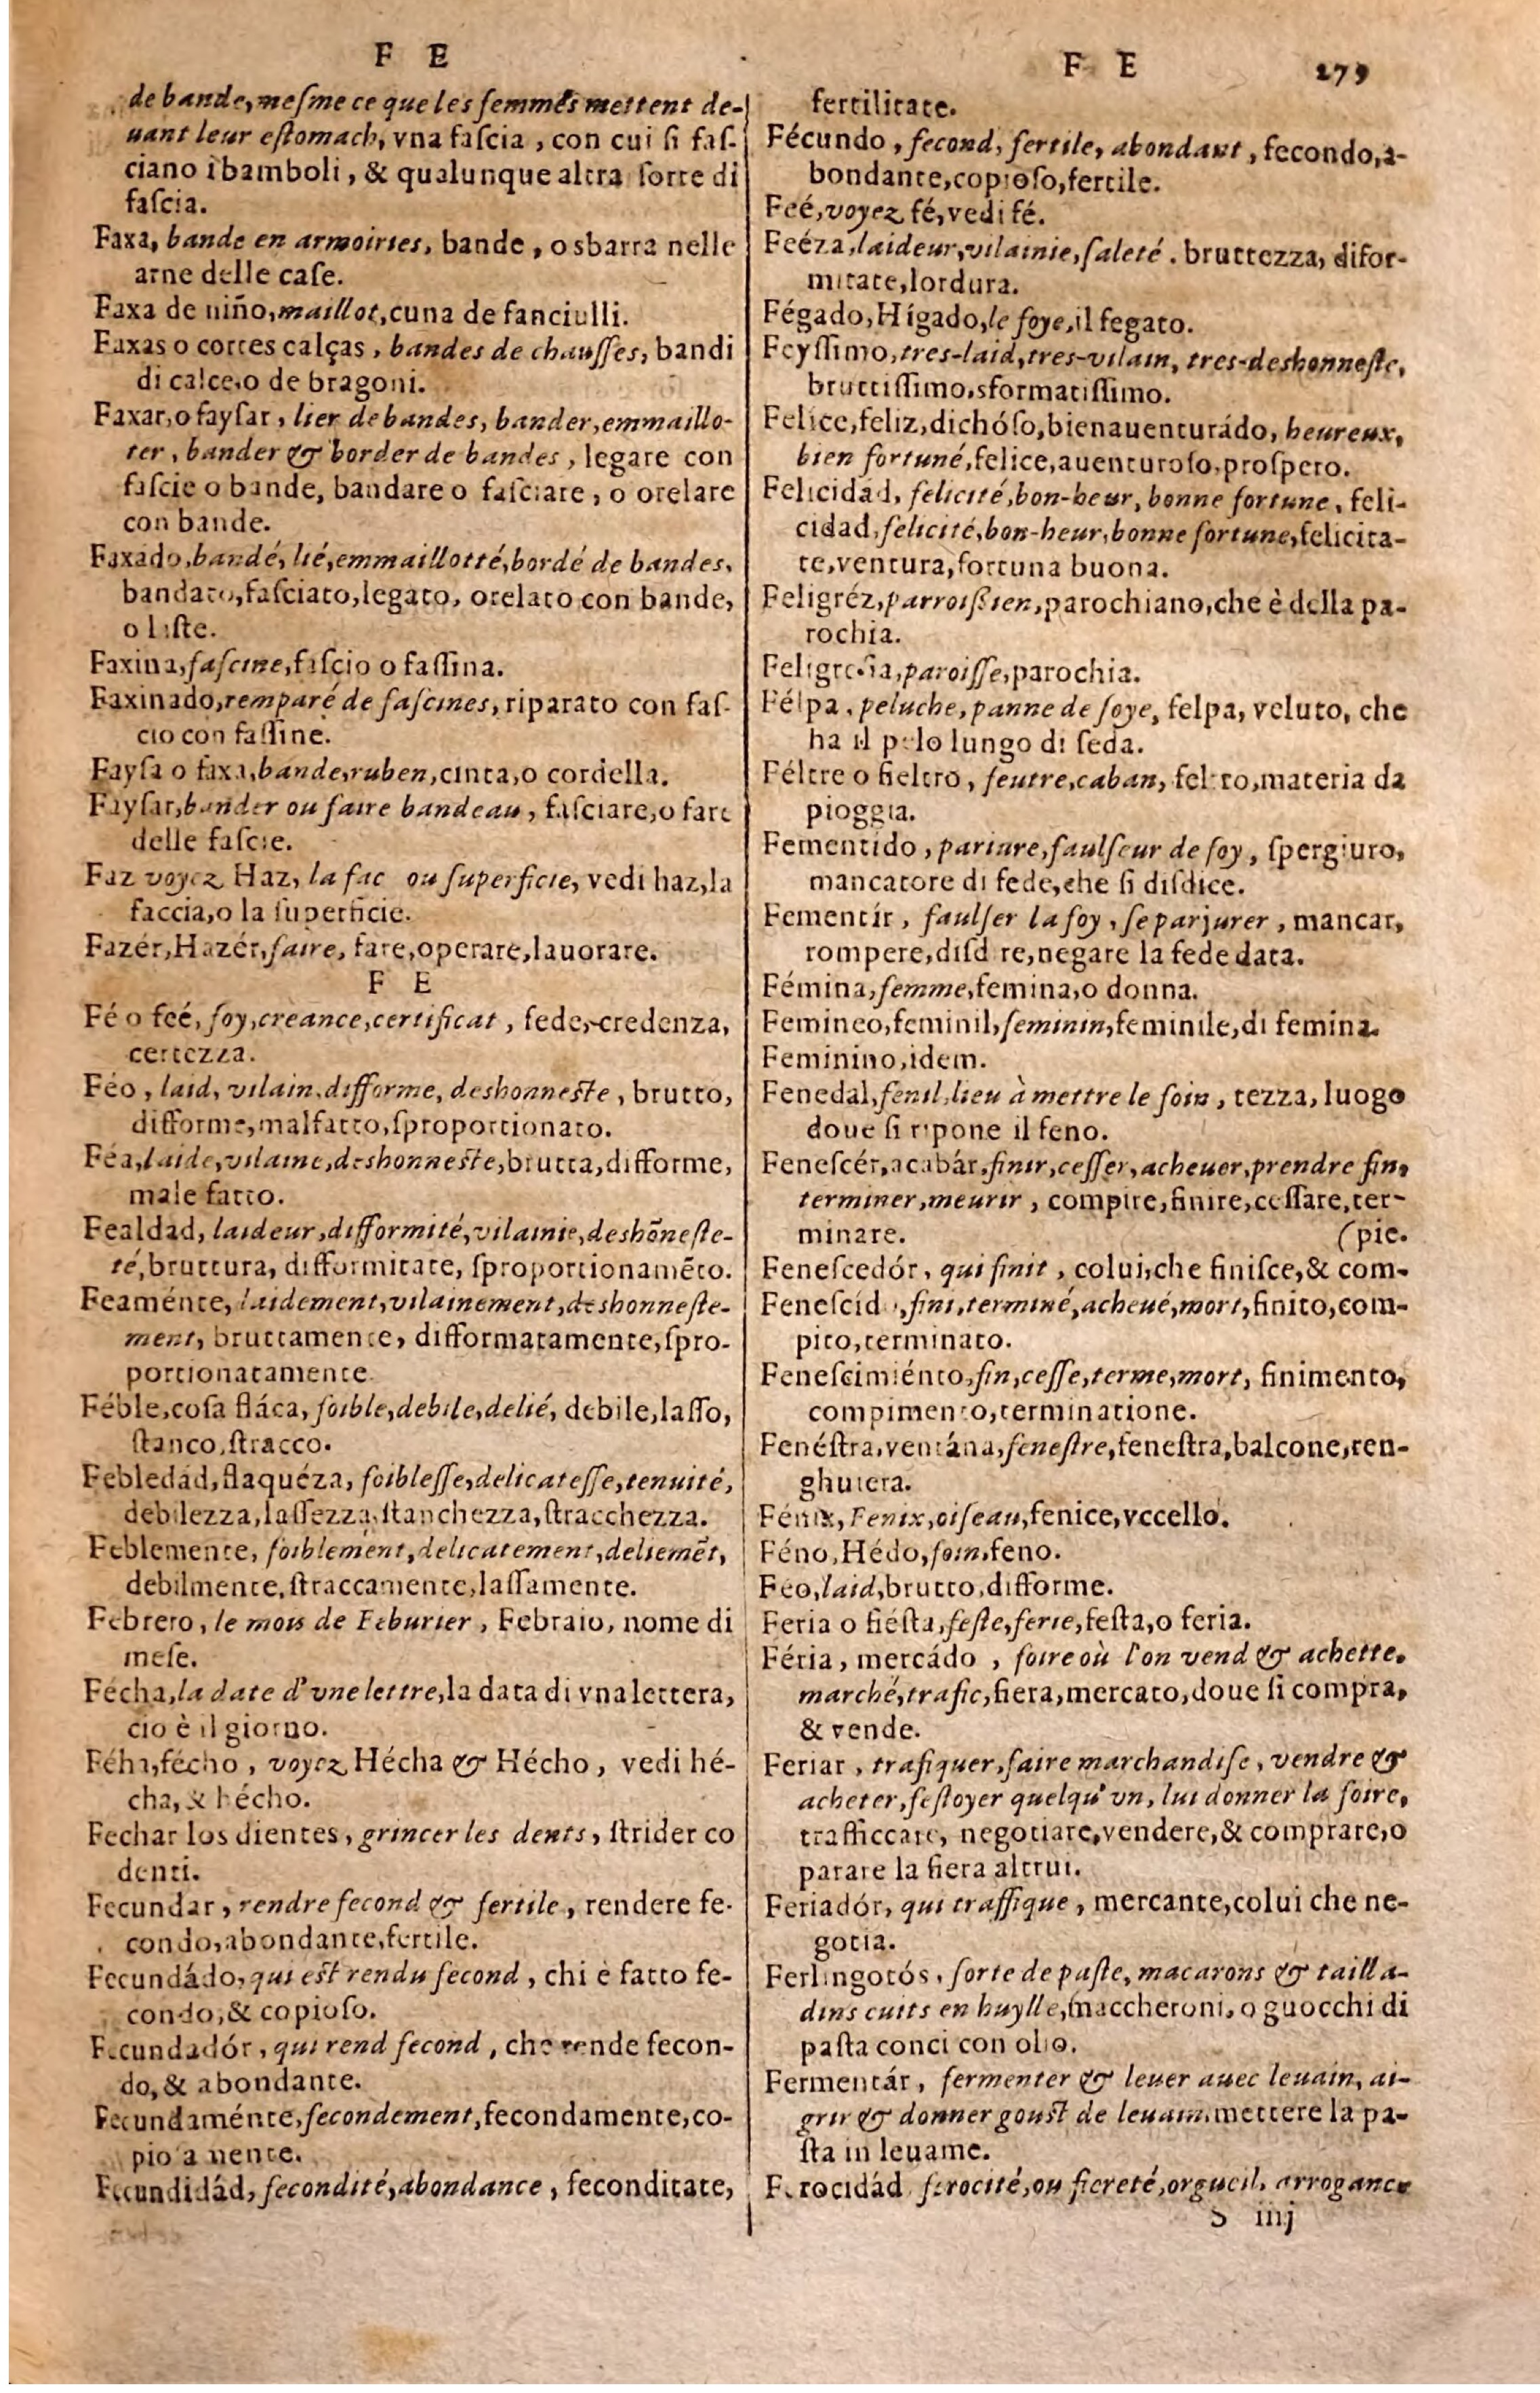 F E
de bande, meſme ce que les femmes mettent de-
uant leur eſtomach, vna faſcia, con cui ſi faſ-
ciano i bamboli, & qualunque altra ſorte di
faſcia.
Faxa, bande en armoiries, bande, o sbarra nelle
arne delle caſe.
Faxa de niño, maillot, cuna de fanciulli.
Faxas o cortes calças, bandes de chauſſes, bandi
di calce, o de bragoni.
Faxar, o fayſar, lier de bandes, bander, emmaillo-
ter, bander & border de bandes, legare con
faſcie o bande, bandare o faſciare, o orelare
con bande.
Faxado, bandé, lié, emmaillotté, bordé de bandes,
bandato, faſciato, legato, orelato con bande,
o liſte.
Faxina, faſcine, faſcio o faſſina.
Faxinado, remparé de faſcines, riparato con faſ-
cio con faſſine.
Fayſa o faxa, bande, ruben, cinta, o cordella.
Fayſar, bander ou faire bandeau, faſciare, o fare
delle faſcie.
Faz voyez Haz, la fac ou ſuperficie, vedi haz, la
faccia, o la ſuperficie.
Fazér, Hazér, faire, fare, operare, lauorare.
F E
Fé o feé, foy, creance, certificat, fede, credenza,
certezza.
Féo, laid, vilain, difforme, deshonneſte, brutto,
difforme, malfatto, ſproportionato.
Féa, laide, vilaine, deshonneſte, brutta, difforme,
male fatto.
Fealdad, laideur, difformité, vilainie, deshõneſte-
té, bruttura, difformitate, ſproportionamẽto.
Feaménte, laidement, vilainement, deshonneſte-
ment, bruttamente, difformatamente, ſpro-
portionatamente.
Féble, coſa fláca, foible, debile, delié, debile, laſſo,
ſtanco, ſtracco.
Febledád, flaquéza, foibleſſe, delicateſſe, tenuité,
debilezza, laſſezza, ſtanchezza, ſtracchezza.
Feblemente, foiblement, delicatement, deliemẽt,
debilmente, ſtraccamente, laſſamente.
Febrero, le mois de Feburier, Febraio, nome di
meſe.
Fécha, la date d'vne lettre, la data di vna lettera,
cio è il giorno.
Féha, fécho, voyez Hécha & Hécho, vedi hé-
cha, & hécho.
Fechar los dientes, grincer les dents, ſtrider co
denti.
Fecundar, rendre fecond & fertile, rendere fe-
condo, abondante, fertile.
Fecundádo, qui eſt rendu fecond, chi è fatto fe-
condo, & copioſo.
Fecundadór, qui rend fecond, che rende fecon-
do, & abondante.
Fecundaménte, fecondement, fecondamente, co-
pio a mente.
Fecundidád, fecondité, abondance, feconditate,
F E 279
fertilitate.
Fécundo, fecond, fertile, abondant, fecondo, a-
bondante, copioſo, fertile.
Feé, voyez fé, vedi fé.
Feéza, laideur, vilainie, ſaleté. bruttezza, difor-
mitate, lordura.
Fégado, Hígado, le foye, il fegato.
Feyſſimo, tres-laid, tres-vilain, tres-deshonneſte,
bruttiſſimo, sformatiſſimo.
Felíce, feliz, dichóſo, bienauenturádo, heureux,
bien fortuné, felice, auenturoſo, proſpero.
Felicidád, felicité, bon-heur, bonne fortune, feli-
cidad, felicité, bon-heur, bonne fortune, felicita-
te, ventura, fortuna buona.
Feligréz, parroiſsien, parochiano, che è della pa-
rochia.
Feligreſia, paroiſſe, parochia.
Félpa, peluche, panne de ſoye, felpa, veluto, che
ha il pelo lungo di ſeda.
Féltre o fieltro, feutre, caban, feltro, materia da
pioggia.
Fementído, pariure, faulſeur de foy, ſpergiuro,
mancatore di fede, che ſi diſdice.
Fementír, faulſer la foy, ſe parjurer, mancar,
rompere, diſd re, negare la fede data.
Fémina, femme, femina, o donna.
Femineo, feminil, feminin, feminile, di femina.
Feminino, idem.
Fenedál, fenil, lieu à mettre le foin, tezza, luogo
doue ſi ripone il feno.
Feneſcér, acabár, finir, ceſſer, acheuer, prendre fin,
terminer, meurir, compire, finire, ceſſare, ter-
minare. (pie.
Feneſcedór, qui finit, colui, che finiſce, & com-
Feneſcído, fini, terminé, acheué, mort, finito, com-
pito, terminato.
Feneſcimiénto, fin, ceſſe, terme, mort, finimento,
compimento, terminatione.
Fenéſtra, ventána, feneſtre, feneſtra, balcone, ren-
ghuiera.
Fénix, Fenix, oiſeau, fenice, vccello.
Féno, Hédo, foin, feno.
Feo, laid, brutto, difforme.
Feria o fiéſta, feſte, ferie, feſta, o feria.
Féria, mercádo, foire où l'on vend & achette,
marché, trafic, fiera, mercato, doue ſi compra,
& vende.
Feriar, trafiquer, faire marchandiſe, vendre &
acheter, feſtoyer quelqu'vn, lui donner la foire,
trafficcare, negotiare, vendere, & comprare, o
parare la fiera altrui.
Feriadór, qui traffique, mercante, colui che ne-
gotia.
Ferlingotós, ſorte de paſte, macarons & tailla-
dins cuits en huylle, maccheroni, o guocchi di
paſta conci con olio.
Fermentár, fermenter & leuer auec leuain, ai-
grir & donner gouſt de leuain, mettere la pa-
ſta in leuame.
Ferocidád ferocité, ou fiereté, orgueil, arrogance
S iiij